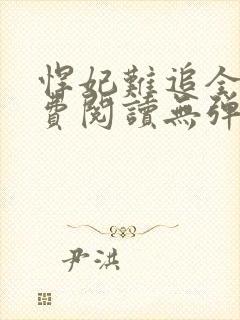 悍妃難追全
費閱讀無彈
尹洪